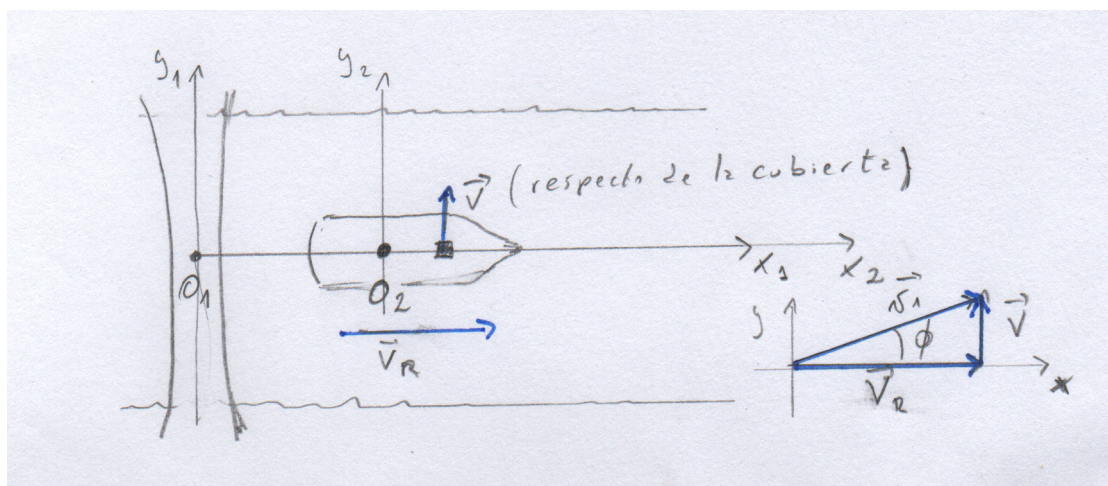 y₁
y₂
V⃗ (respecto de la cubierta)
O₁
O₂
x₁
x₂
V⃗_R
y
v⃗₁
V⃗
ϕ
V⃗_R
x